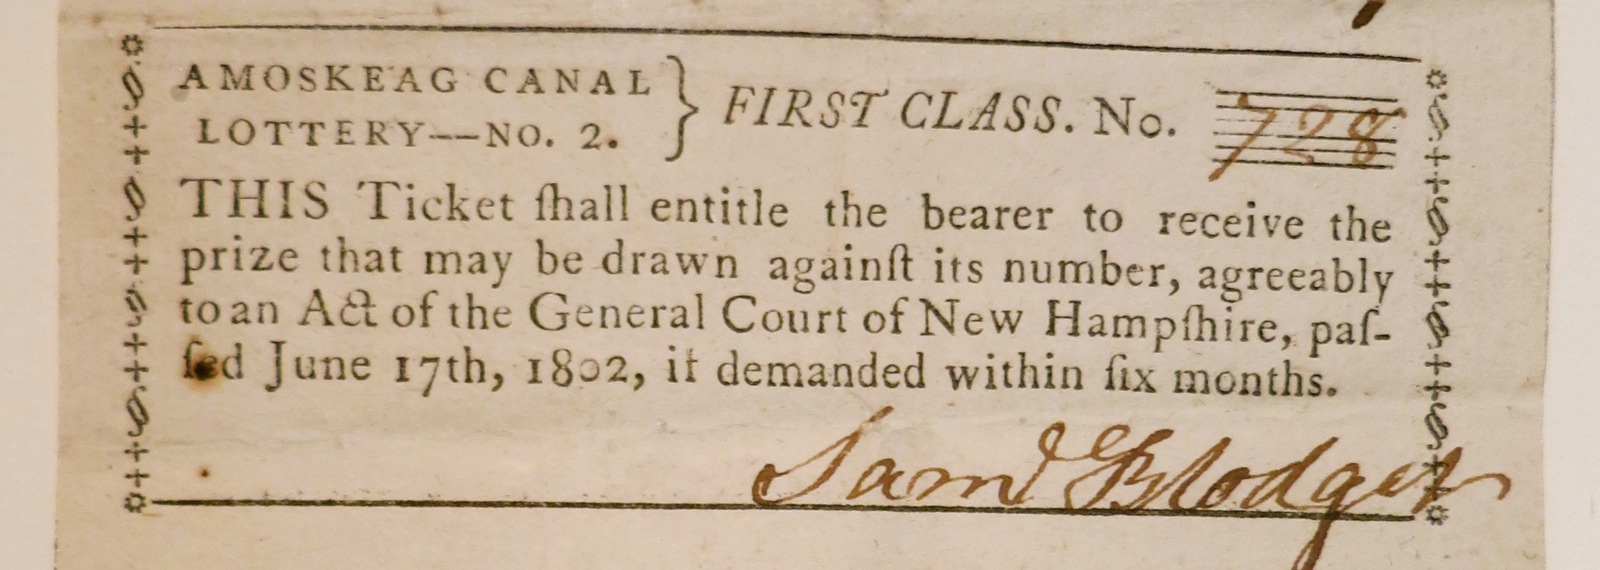 AMOSKEAG CANAL
LOTTERY--NO. 2.
} FIRST CLASS. No. 728
THIS Ticket ſhall entitle the bearer to receive the
prize that may be drawn againſt its number, agreeably
to an Act of the General Court of New Hampſhire, paſ-
ſed June 17th, 1802, if demanded within ſix months.
Saml Blodget